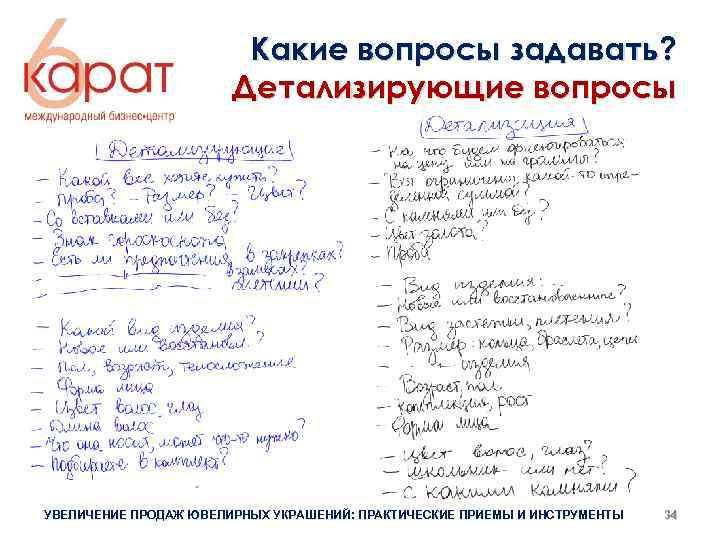 6 карат
международный бизнес-центр
Какие вопросы задавать?
Детализирующие вопросы
Детализирующие
– Какой вес хотите купить?
– Проба? – Размер? – Цвет?
– Со вставками или без?
– Знак гороскопа
– Есть ли предпочтения в закрепках?
в замках?
плетении?
– Какой вид изделия?
– Новое или восстановл.?
– Пол, возраст, телосложение
– Форма лица
– Цвет волос, глаз
– Длина волос
– Что она носит, может что-то нужно?
– Подбираете в комплект?
Детализация
– На что будем ориентироваться
на цену или на граммы?
– Вы ограничены какой-то опре-
деленной суммой?
– С камнями или без?
– Цвет золота?
– Проба
– Вид изделия:
– Новые или восстановленные?
– Вид застежки, плетения?
– Размер: кольца, браслета, цепи
– – изделия
– Возраст, пол
– комплекция, рост
– Форма лица
– Цвет волос, глаз?
– школьник или нет?
– с какими камнями?
УВЕЛИЧЕНИЕ ПРОДАЖ ЮВЕЛИРНЫХ УКРАШЕНИЙ: ПРАКТИЧЕСКИЕ ПРИЕМЫ И ИНСТРУМЕНТЫ
34